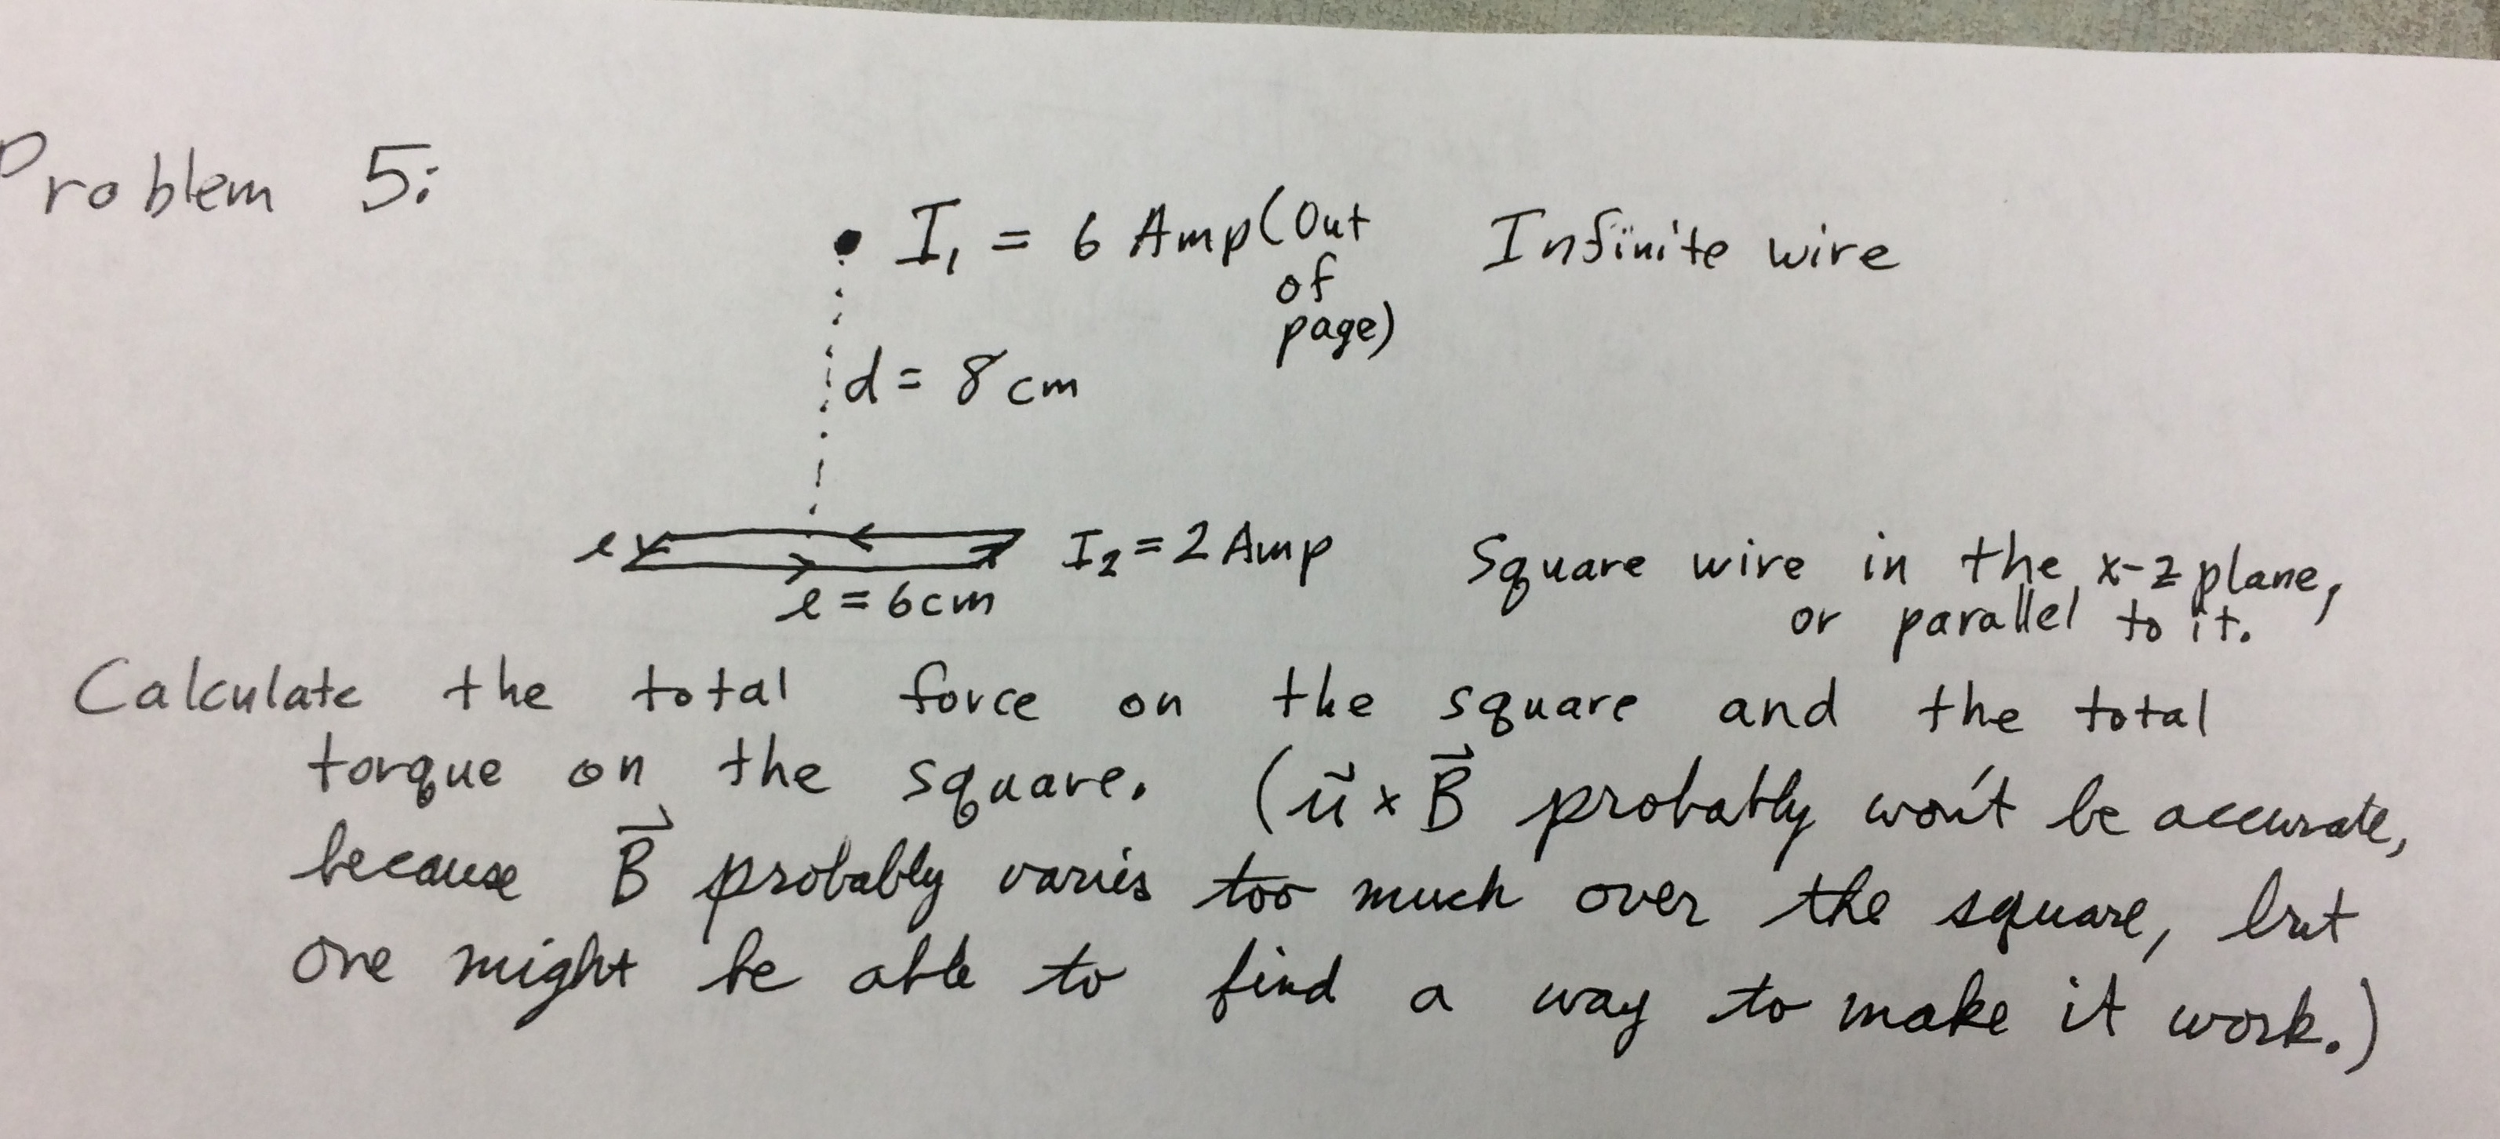 Problem 5:
I₁ = 6 Amp (Out of page) Infinite wire
d = 8 cm
l I₂ = 2 Amp Square wire in the x-z plane,
l = 6cm or parallel to it.
Calculate the total force on the square and the total
torque on the square. (u⃗ × B⃗ probably won't be accurate,
because B⃗ probably varies too much over the square, but
one might be able to find a way to make it work.)